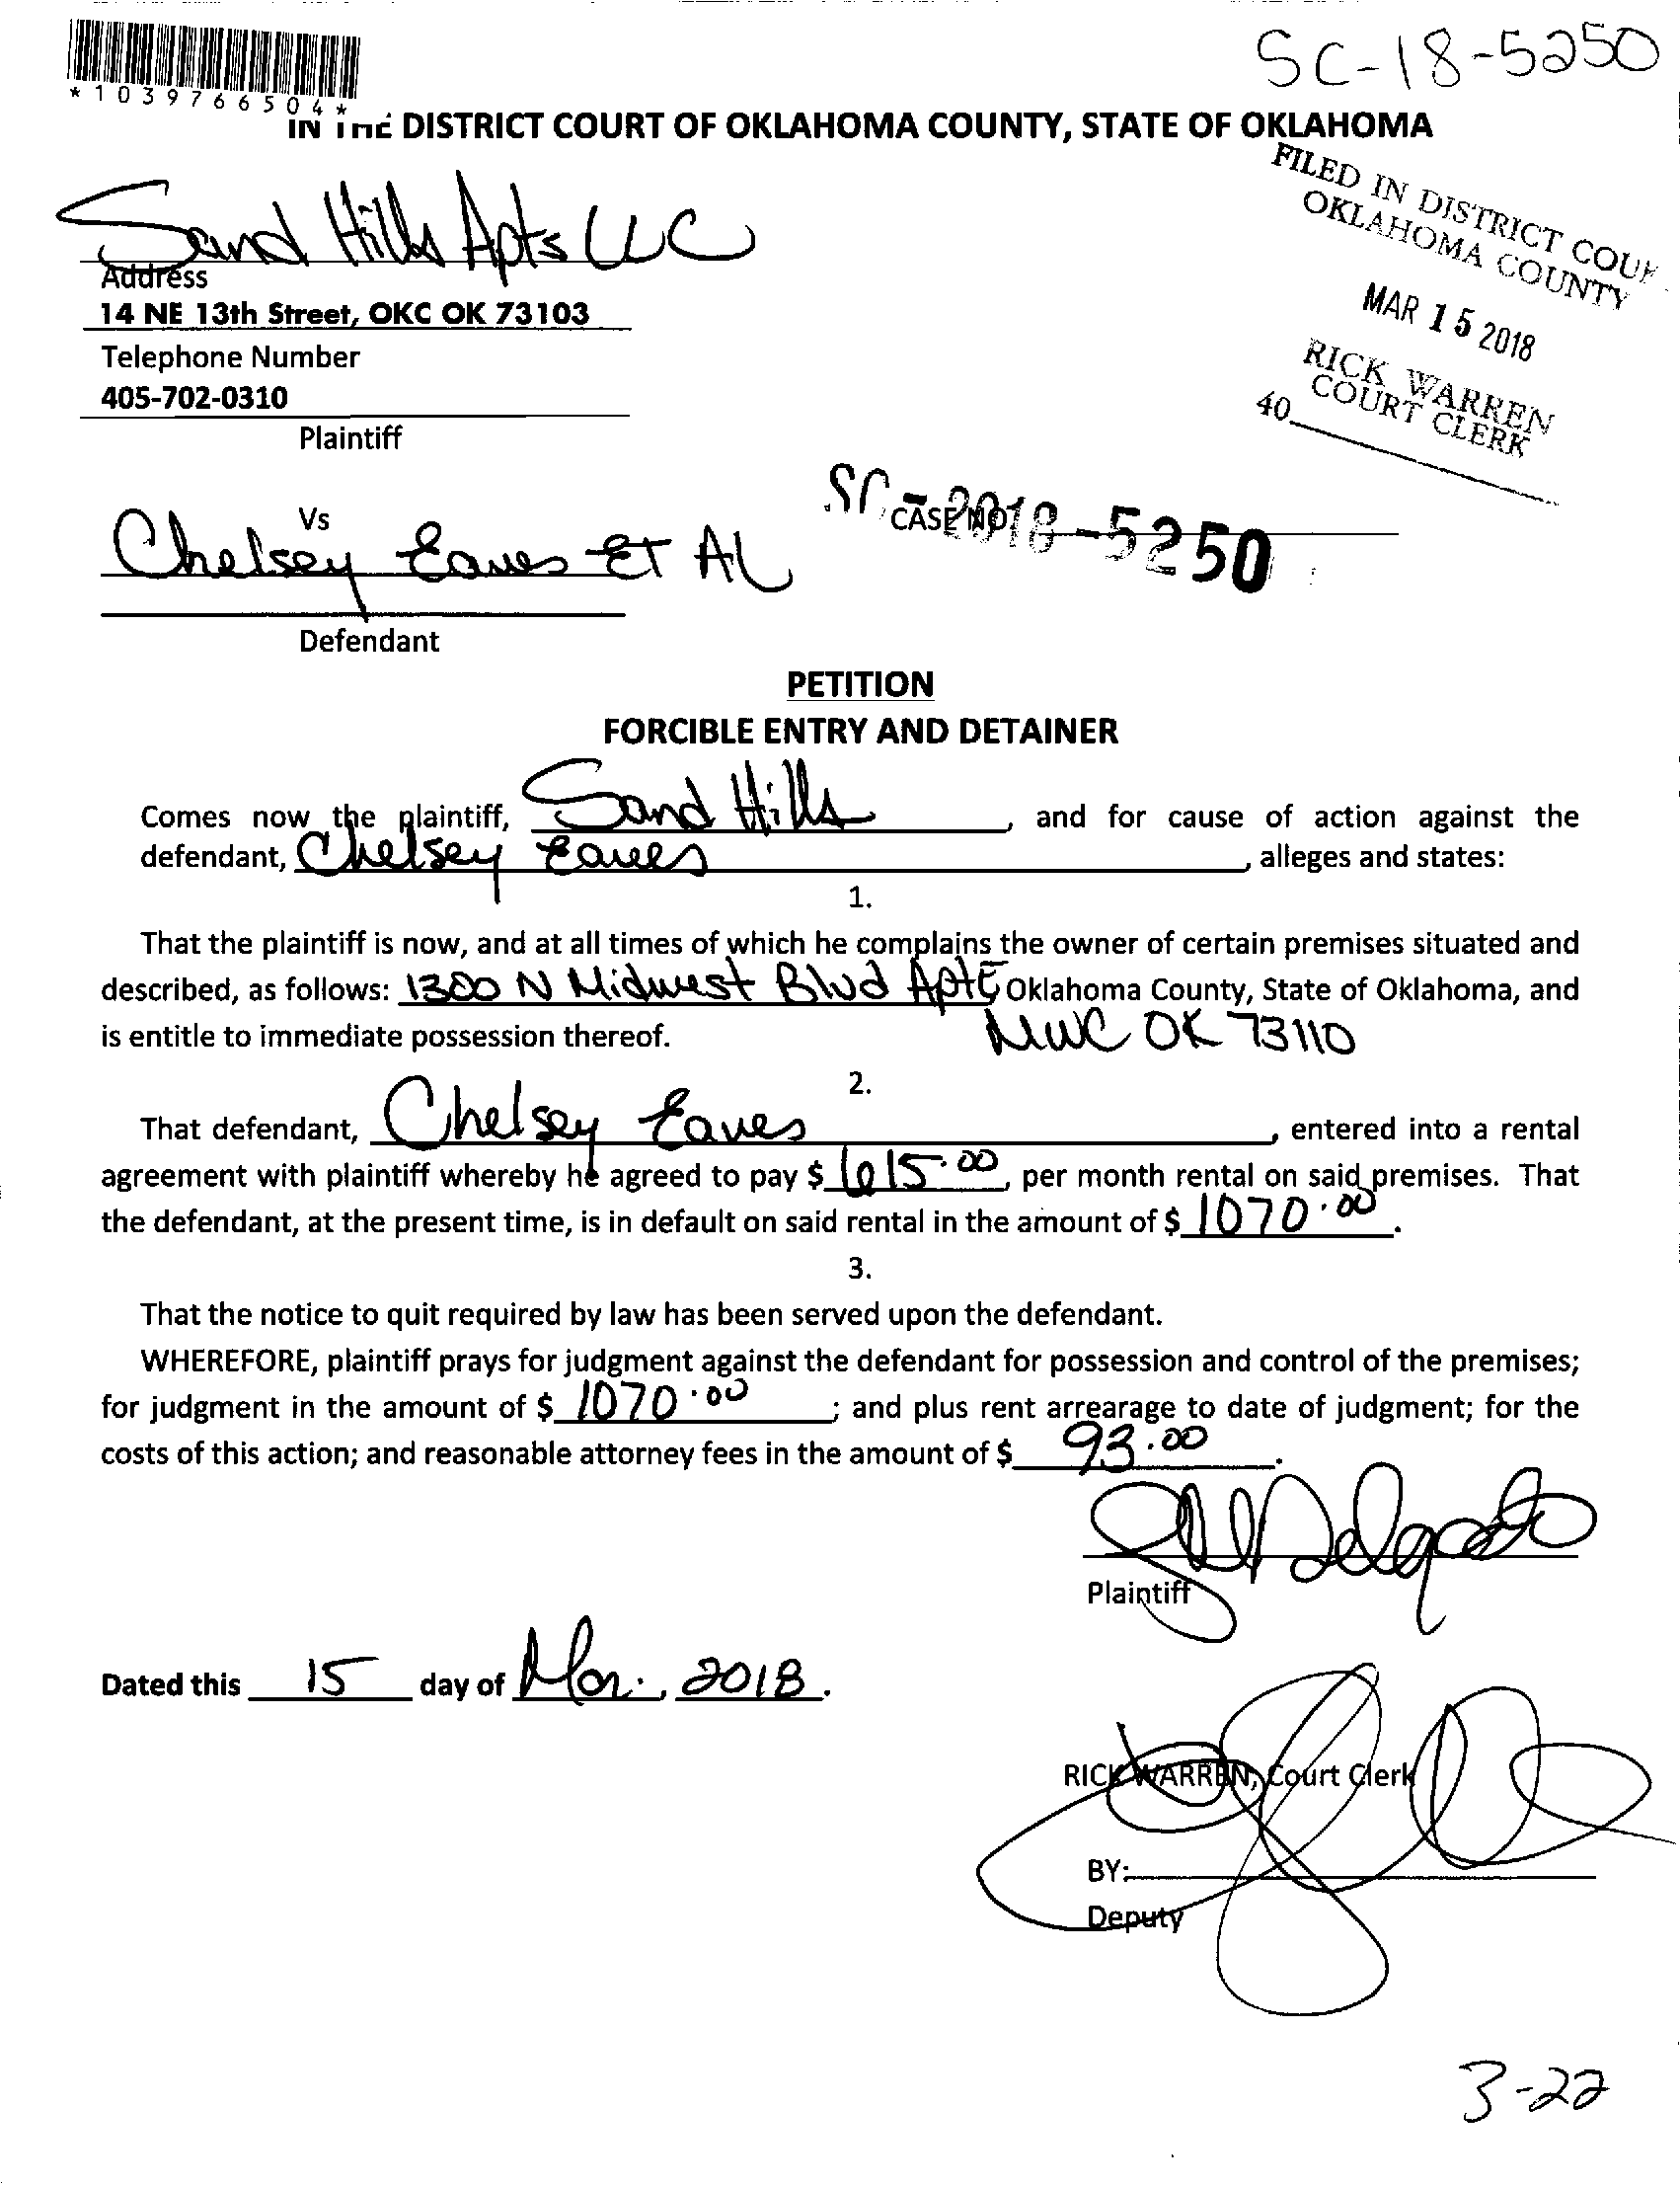 SC-18-5250
*1039766504*
IN THE DISTRICT COURT OF OKLAHOMA COUNTY, STATE OF OKLAHOMA
FILED IN DISTRICT COUR
OKLAHOMA COUNTY
MAR 15 2018
RICK WARREN
COURT CLERK
40
Sand Hills Apts LLC
Address
14 NE 13th Street, OKC OK 73103
Telephone Number
405-702-0310
Plaintiff
Vs
CASE NO
SC-2018-5250
Chelsey Eaves ET AL
Defendant
PETITION
FORCIBLE ENTRY AND DETAINER
Comes now the plaintiff, Sand Hills, and for cause of action against the
defendant, Chelsey Eaves, alleges and states:
1.
That the plaintiff is now, and at all times of which he complains the owner of certain premises situated and
described, as follows: 1300 N Midwest Blvd Apt E Oklahoma County, State of Oklahoma, and
is entitle to immediate possession thereof. MWC OK 73110
2.
That defendant, Chelsey Eaves, entered into a rental
agreement with plaintiff whereby he agreed to pay $ 615.00, per month rental on said premises. That
the defendant, at the present time, is in default on said rental in the amount of $ 1070.00.
3.
That the notice to quit required by law has been served upon the defendant.
WHEREFORE, plaintiff prays for judgment against the defendant for possession and control of the premises;
for judgment in the amount of $ 1070.00; and plus rent arrearage to date of judgment; for the
costs of this action; and reasonable attorney fees in the amount of $ 93.00.
Plaintiff
Dated this 15 day of Mar., 2018.
RICK WARREN, Court Clerk
BY:
Deputy
3-22